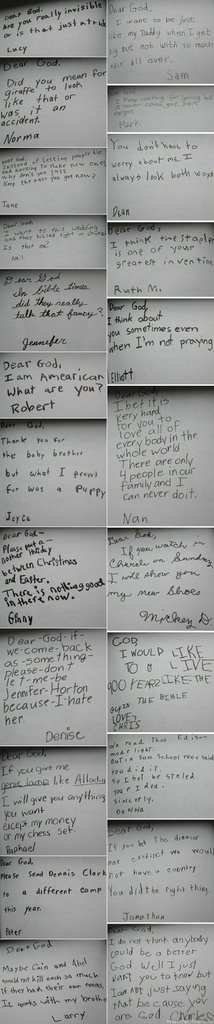 Dear God,
Are you really invisible
or is that just a trick
Lucy
Dear God,
Did you mean for
giraffe to look
like that or
was it an
accident.
Norma
Dear God,
Instead of letting people die
and haveing to make new ones
why don't you just
keep the ones you got now?
Jane
Dear God,
I went to this wedding
and they kissed right in church
Is that ok?
Neil
Dear God
In bible times
did they really
talk that fancy?
Jennifer
Dear God,
I am Amearican
what are you?
Robert
Dear God,
Thank you for
the baby brother
but what I prayed
for was a puppy
Joyce
Dear God-
Please put a-
nother holiday
between Christmas
and Easter.
There is nothing good
in there now.
Ginny
Dear-God-if-
we-come-back
as-something-
please-don't
let-me-be
Jennifer-Horton
because-I-hate
her.
Denise
Dear God,
If you give me
genie lamp like Alladin
I will give you anything
you want
except my money
or my chess set.
Raphael
Dear God,
Please send Dennis Clark
to a different camp
this year.
Peter
Dear God
Maybe Cain and Abel
would not kill each so much
if they had their own rooms.
It works with my brother
Larry
Dear God,
I want to be just
like my Daddy when I get
big but not with so much
hair all over.
Sam
Dear God,
I keep waiting for spring but
it never come yet. Don't
forget.
Mark
You don't have to
worry about me. I
always look both ways
Dean
Dear God,
I think the stapler
is one of your
greatest invention
Ruth M.
Dear God,
I think about
you sometimes even
when I'm not praying
Elliott
Dear God,
I bet it is
very hard
for you to
love all of
every body in the
whole world
There are only
4 people in our
family and I
can never do it.
Nan
Dear God,
If you watch in
Church on Sunday
I will show you
my new shoes
Mickey D.
GOD,
I WOULD LIKE
TO LIVE
900 YEARS LIKE THE
GUY IN THE BIBLE
LOVE
CHRIS
We read Thos. Edison
made light
But in Sun. School they said
You did it.
So I bet he stoled
your idea.
Sincerly,
Donna
Dear God,
If you let the dinasor
not exstinct we would
not have a country
You did the right thing.
Jonathan
Dear God,
I do not think anybody
could be a better
God Well I just
want you to know but
I am not just saying
that because you
are God
Charles